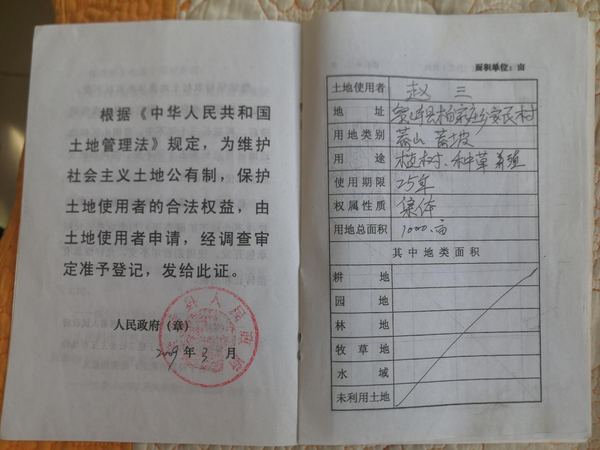 根据《中华人民共和国
土地管理法》规定，为维护
社会主义土地公有制，保护
土地使用者的合法权益，由
土地使用者申请，经调查审
定准予登记，发给此证。
人民政府（章）
2009年3月
县人民政府
面积单位：亩
土地使用者 赵三
地址 县杨家庄乡 村
用地类别 荒山 荒坡
用途 植树、种草 养殖
使用期限 25年
权属性质 集体
用地总面积 1000亩
其中地类面积
耕地
园地
林地
牧草地
水域
未利用土地